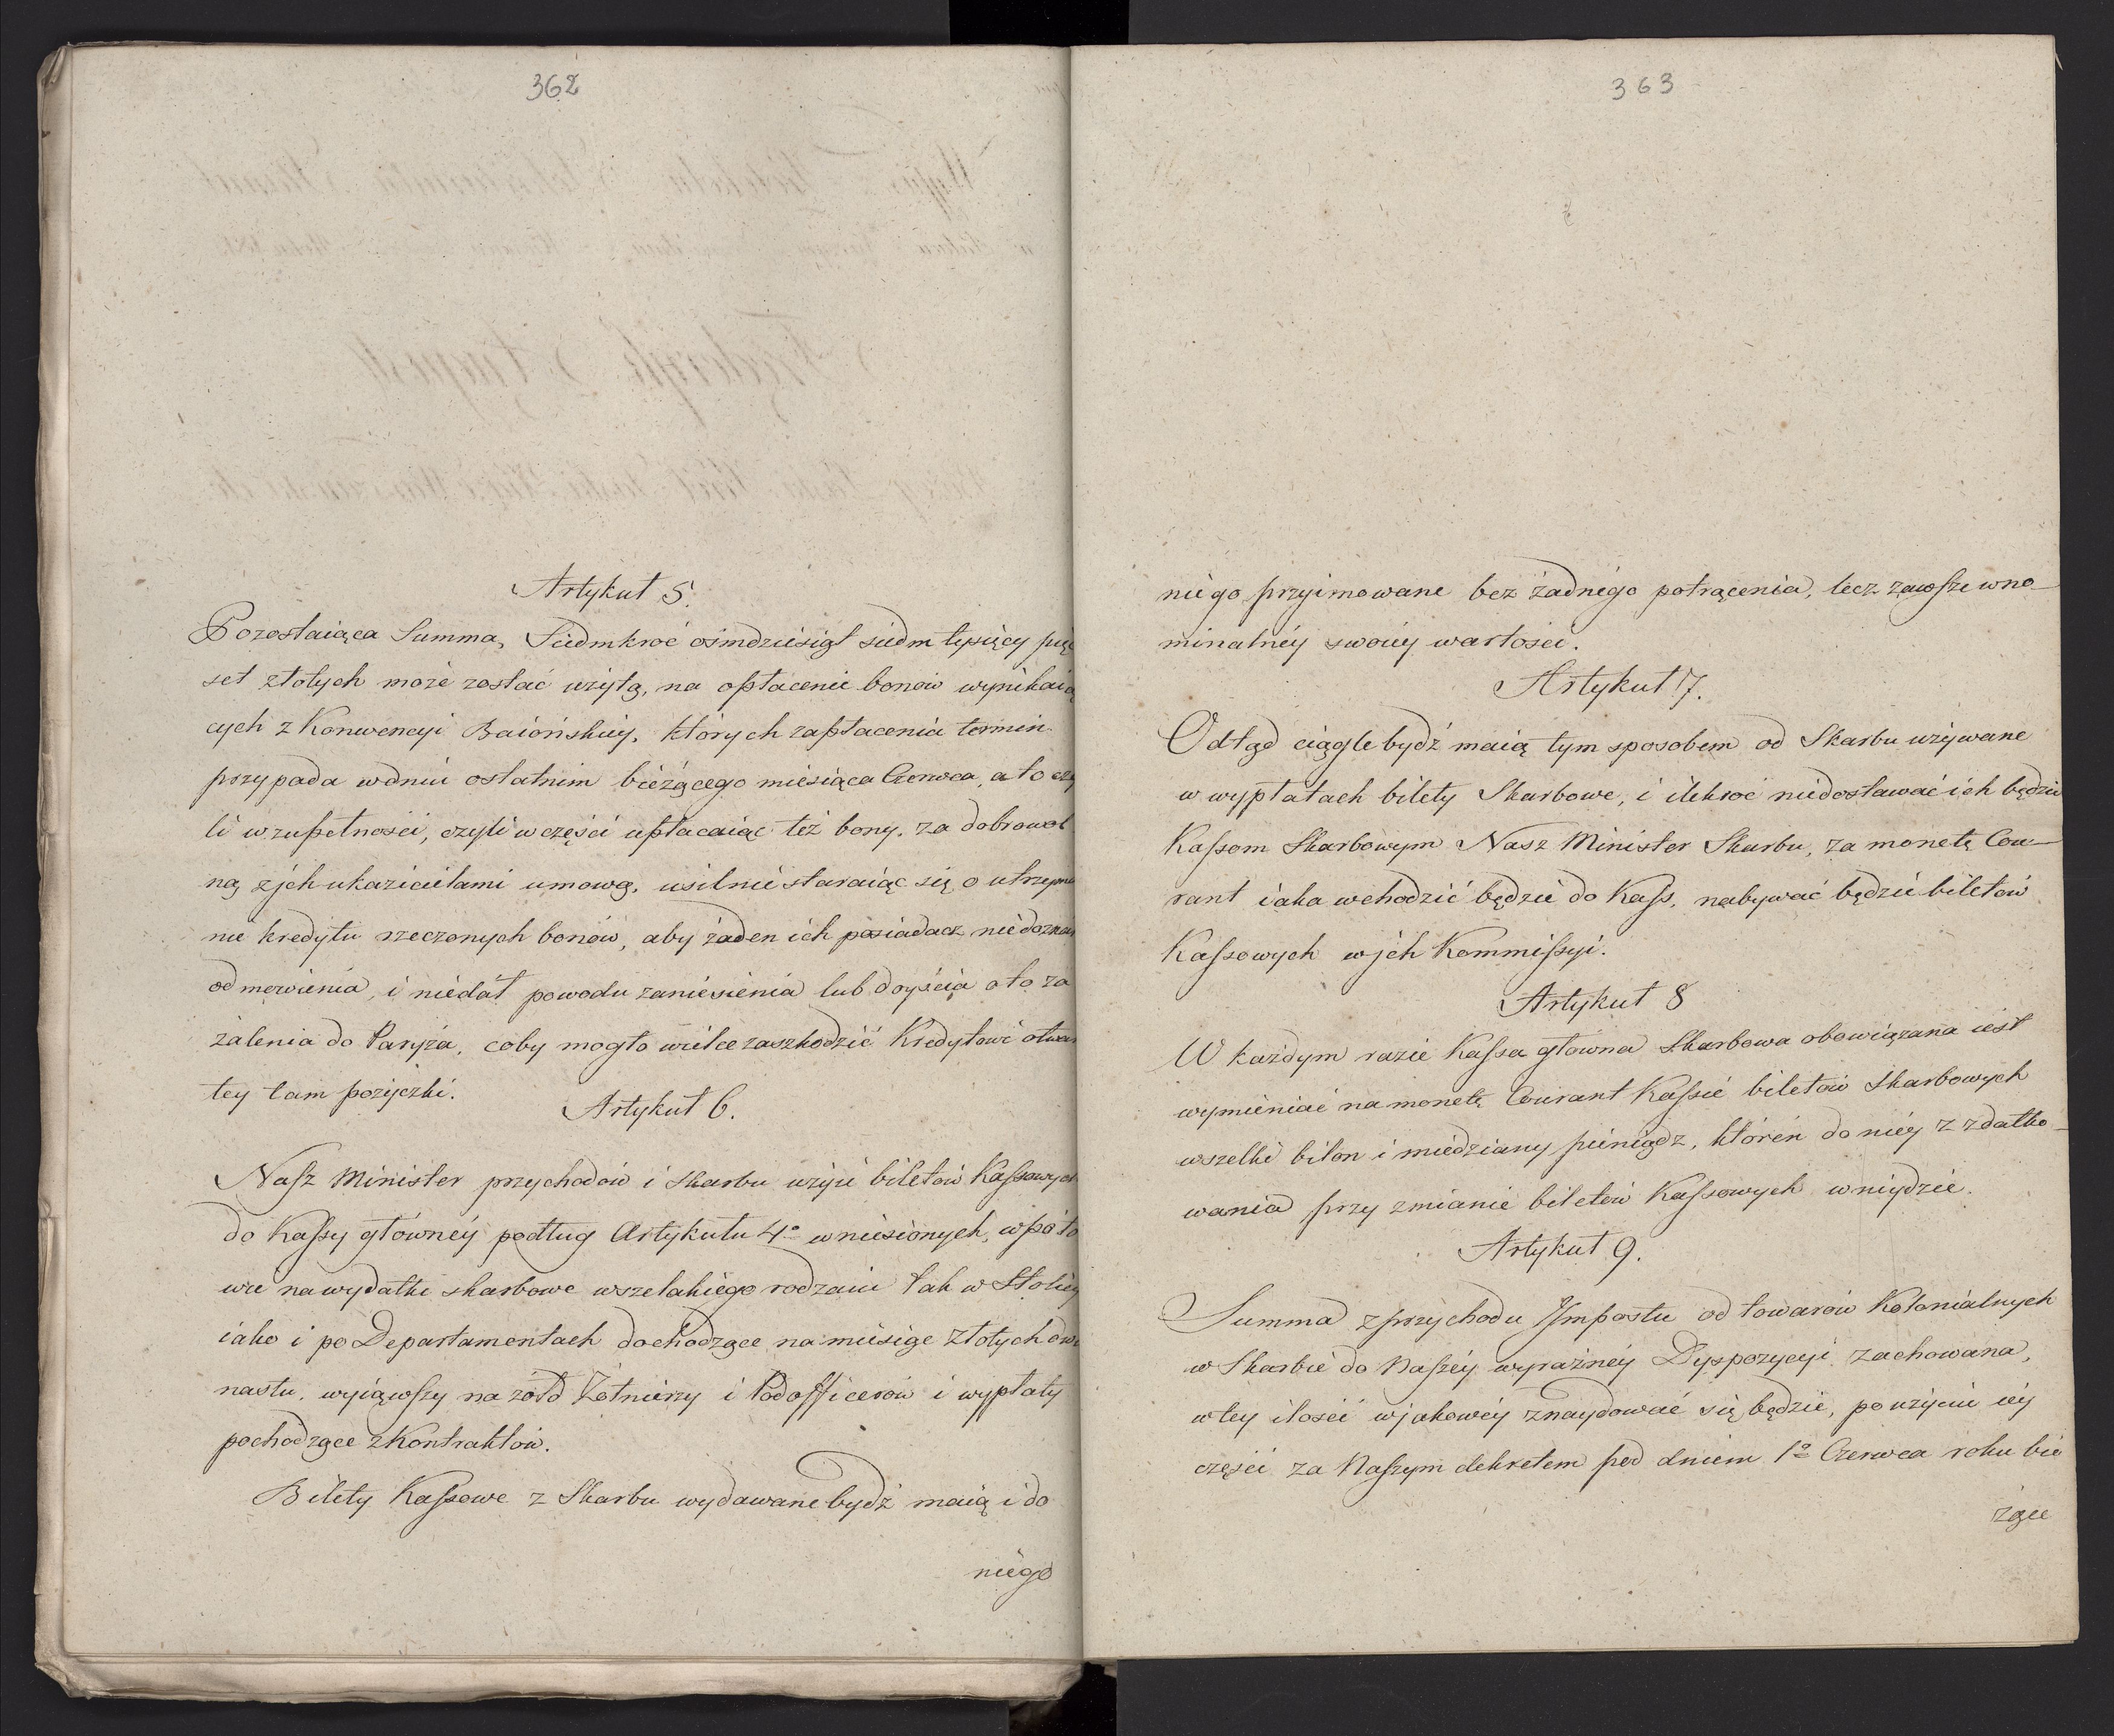 362
Artykuł 5.
Pozostaiąca Summa, Siedmkroć ośmdziesiąt siedm tysięcy pię
set złotych może zostać użytą, na opłacenie bonów wynikaią
cych z Konwencyi Baiońskiey, których zapłacenia termin
przypada w dniu ostatnim bieżącego miesiąca Czerwca, a to czy
li w zupełności, czyli w części upłacaiąc też bony. za dobrowol
ną z jch ukazicielami umową, usilnie staraiąc się o utrzyma
nie kredytu rzeczonych bonów, aby żaden ich posiadacz niedoznał
odmówienia, i niedał powodu zaniesienia lub doyścia o to za
żalenia do Paryża, coby mogło wielce zaszkodzić Kredytowi otwar
tey tam pożyczki.
Artykuł 6.
Nasz Minister przychodów i Skarbu użyie biletów Kassowych
do Kassy główney podług Artykułu 4º wniesionych, w poło
wie na wydatki skarbowe wszelakiego rodzaiu tak w Stolicy
iako i po Departamentach dochodzące na miesiąc złotych dwa
nastu, wyiąwszy na żołd Żołnierzy i Podofficerów i wypłaty
pochodzące z Kontraktów.
Bilety Kassowe z Skarbu wydawane bydź maią i do
niego
363
niego przyimowane bez żadnego potrącenia, lecz zawsze w no-
minalney swoiey wartości.
Artykuł 7.
Odtąd ciągle bydź maią tym sposobem od Skarbu używane
w wypłatach bilety Skarbowe, i ilekroć niedostawać ich będzie
Kassom Skarbowym Nasz Minister Skarbu, za monetę Cou-
rant iaka wchodzić będzie do Kass, nabywać będzie biletów
Kassowych w jch Kommissyi.
Artykuł 8
W każdym razie Kassa główna Skarbowa obowiązana iest
wymieniać na monetę Courant Kassie biletów Skarbowych
wszelki bilon i miedziany pieniądz, któren do niéy z zdatko-
wania przy zmianie biletów Kassowych wniydzie.
Artykuł 9.
Summa z przychodu Jmpostu od towarów Kolonialnych
w Skarbie do Naszéy wyraźnéy Dyspozycyi zachowana,
w tey ilości w jakowéy znaydować się będzie, po użyciu iéy
części za Naszym dekretem pod dniem 1º Czerwca roku bie
żące